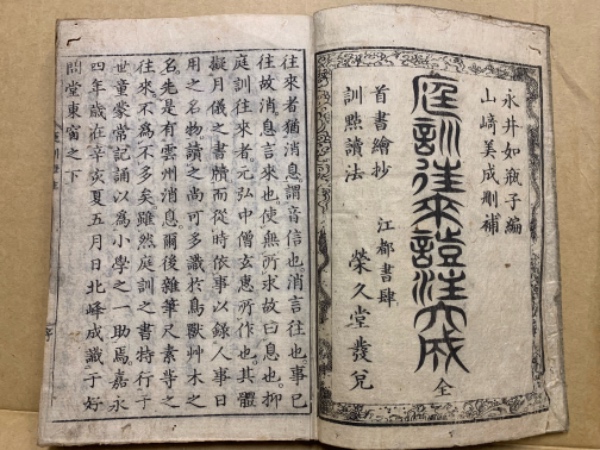 永井如瓶子編
山﨑美成刪補
庭訓往来諺注大成
全
首書繪抄
訓點讀法
江都書肆
榮久堂發兌
往來者猶消息謂音信也消言往也事已
往故消息言來也使無所求故曰息也抑
庭訓往來者元弘中僧玄惠所作也其體
擬月儀之書牘而從時依事以錄人事日
用之名物讀之尚可多識於鳥獸艸木之
名先是有雲州消息爾後雜筆尺素等之
往來不爲不多矣雖然庭訓之書特行于
世童蒙常記誦以爲小學之一助焉嘉永
四年歲在辛亥夏五月日北峰成識于好
問堂東窗之下
序